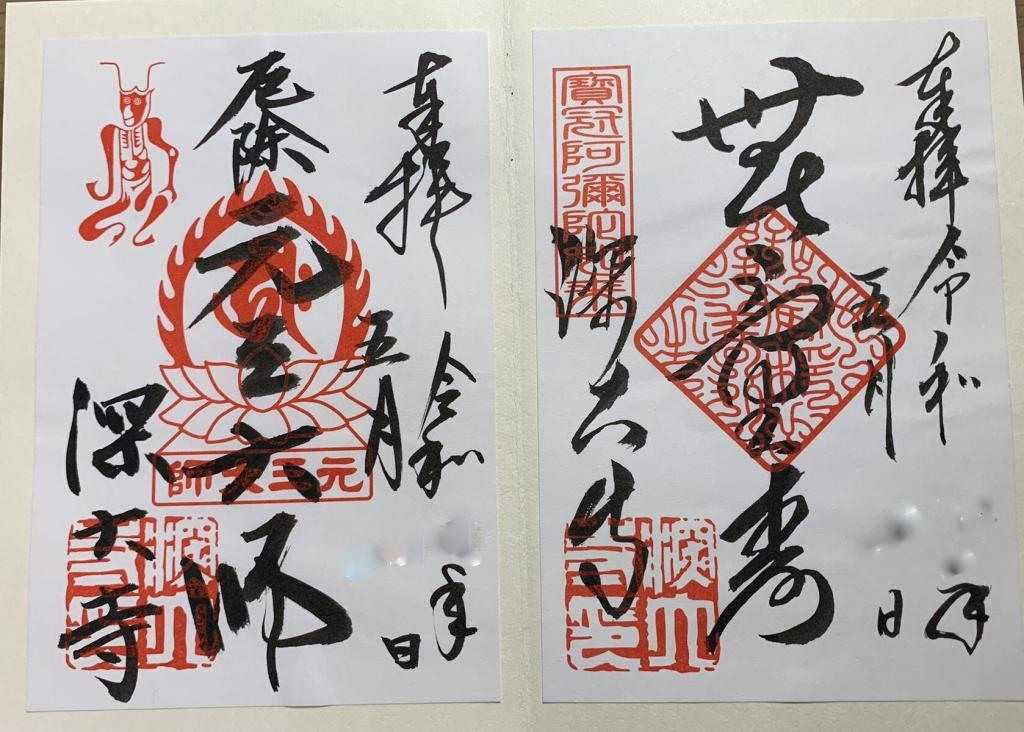 奉拝 令和 年
五月 日
無量寿
寶冠阿彌陀
深大寺
奉拝 令和 年
五月 日
厄除元三大師
元三大師
深大寺